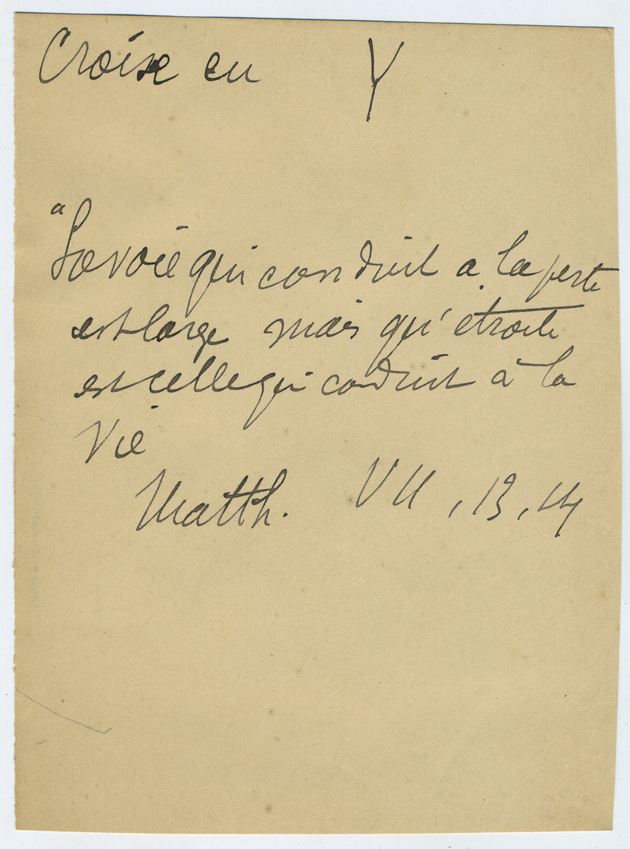 Croix en Y
"La voie qui conduit à la perte
est large mais qu'étroite
est celle qui conduit à la
Vie
Matth. VII, 13, 14